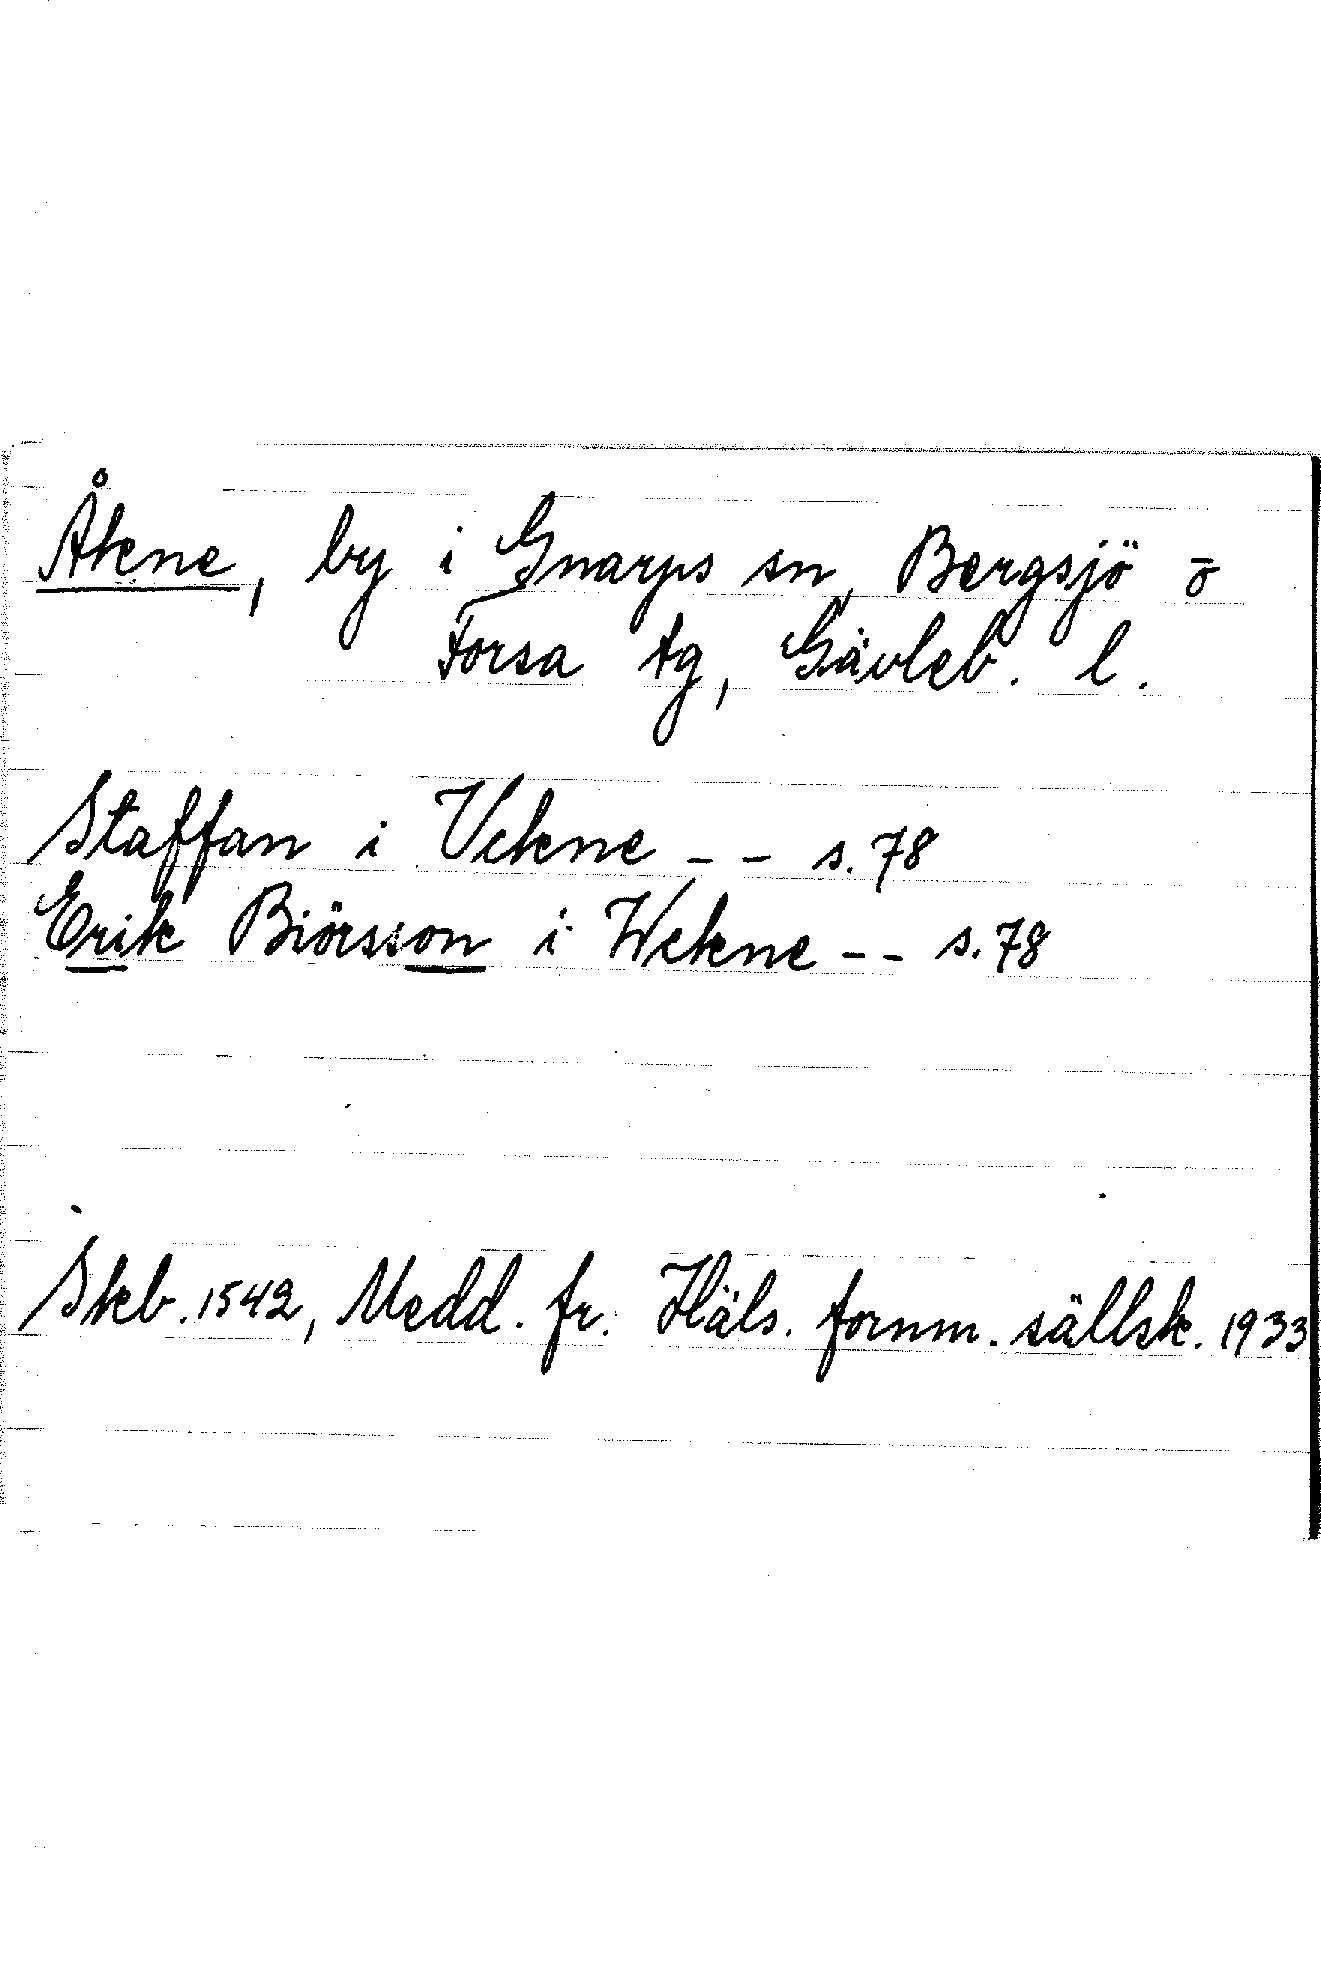 Åkne, by i Gnarps sn, Bergsjö o
Forsa tg, Gävleb. l.
Staffan i Vekne -- s. 78
Erik Biörsson i Wekne -- s. 78
Skb. 1542, Medd. fr. Häls. fornm. sällsk. 1933